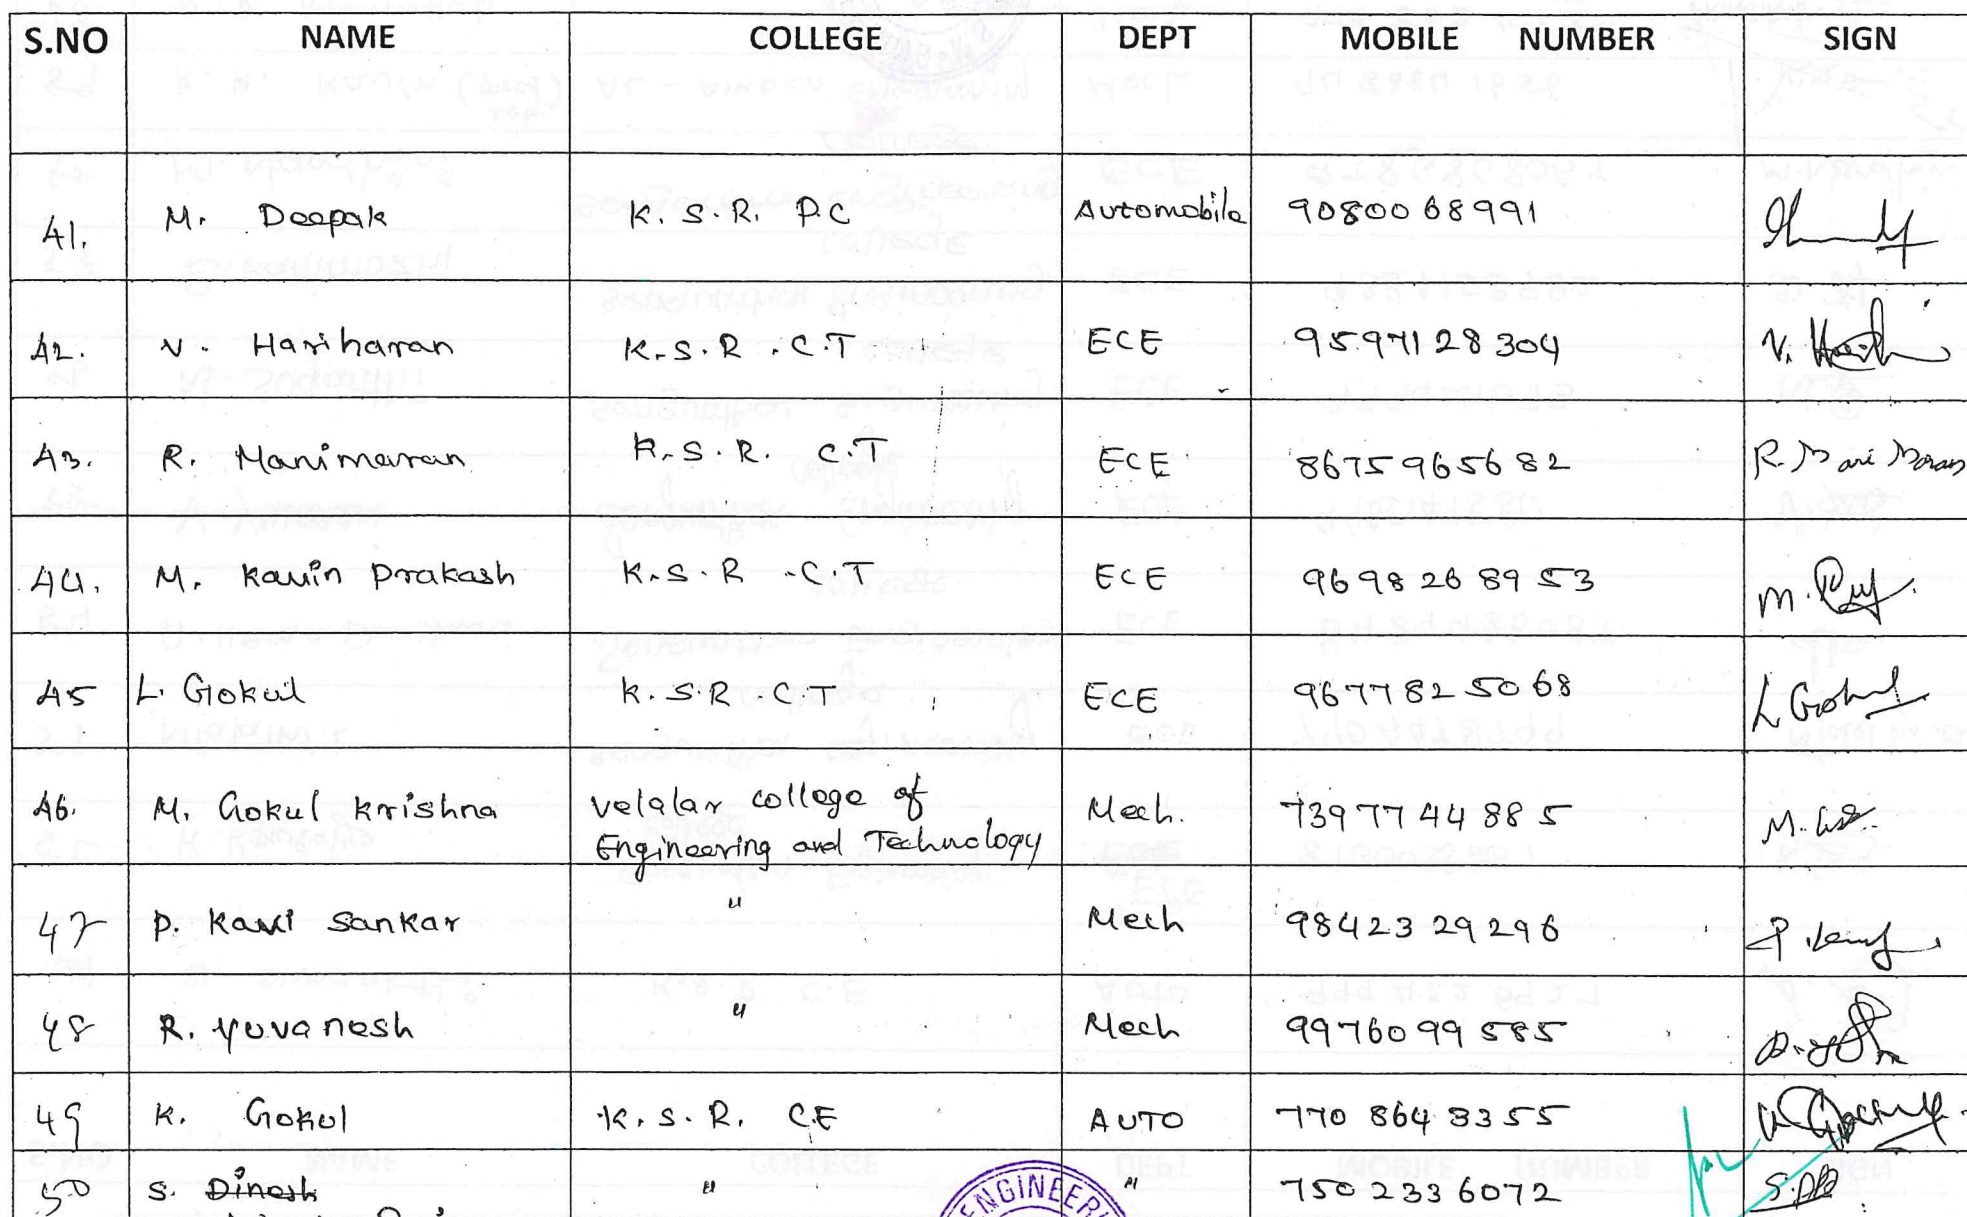 S.NO NAME COLLEGE DEPT MOBILE NUMBER SIGN
41. M. Deepak K. S. R. P.C Automobile 9080068991
42. V. Hariharan K.S.R.C.T ECE 9597128304 V. Hari
43. R. Manimaran K.S.R. C.T ECE 8675965682 R. Mani Maran
44. M. Kavin Prakash K.S.R.C.T ECE 9698268953 M.
45 L. Gokul K.S.R.C.T ECE 9677825068 L Gokul
46. M. Gokul Krishna Velalar college of Mech. 7397744885 M.
Engineering and Technology
47 P. Kavi Sankar " Mech 9842329296 P.
48 R. Yuvanesh " Mech 9976099585
49 K. Gokul K.S.R. C.E AUTO 7708643355 K Gokul
50 S. Dinesh " " 7502336072
ENGINEERI